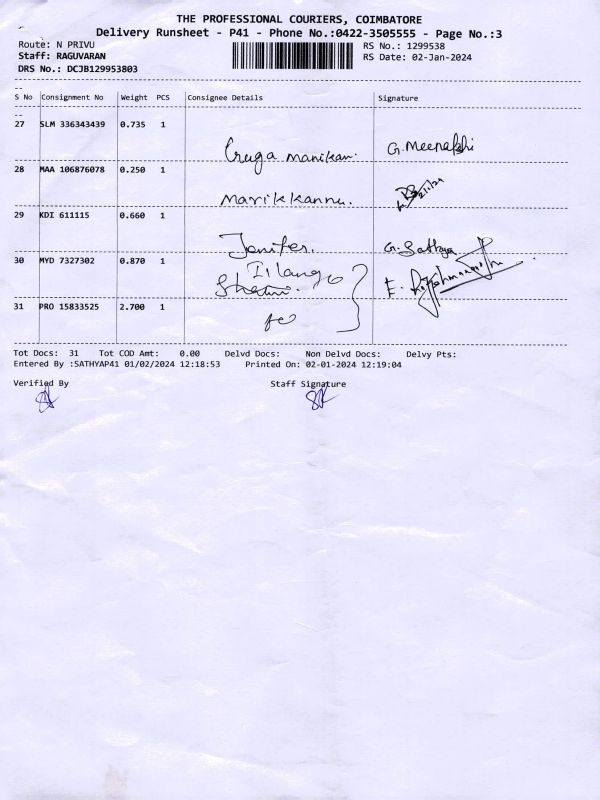 THE PROFESSIONAL COURIERS, COIMBATORE
Delivery Runsheet - P41 - Phone No.:0422-3505555 - Page No.:3
Route: N PRIVU
RS No.: 1299538
Staff: RAGUVARAN
RS Date: 02-Jan-2024
DRS No.: DCJB129953803
S No Consignment No Weight PCS Consignee Details Signature
27 SLM 336343439 0.735 1
manikan G. Meenakshi
28 MAA 106876078 0.250 1
Marikkannu. 2/1/24
29 KDI 611115 0.660 1
Jenifer. G. Sathya
30 MYD 7327302 0.870 1
Ilango
E.
31 PRO 15833525 2.700 1
Tot Docs: 31 Tot COD Amt: 0.00 Delvd Docs: Non Delvd Docs: Delvy Pts:
Entered By :SATHYAP41 01/02/2024 12:18:53 Printed On: 02-01-2024 12:19:04
Verified By Staff Signature